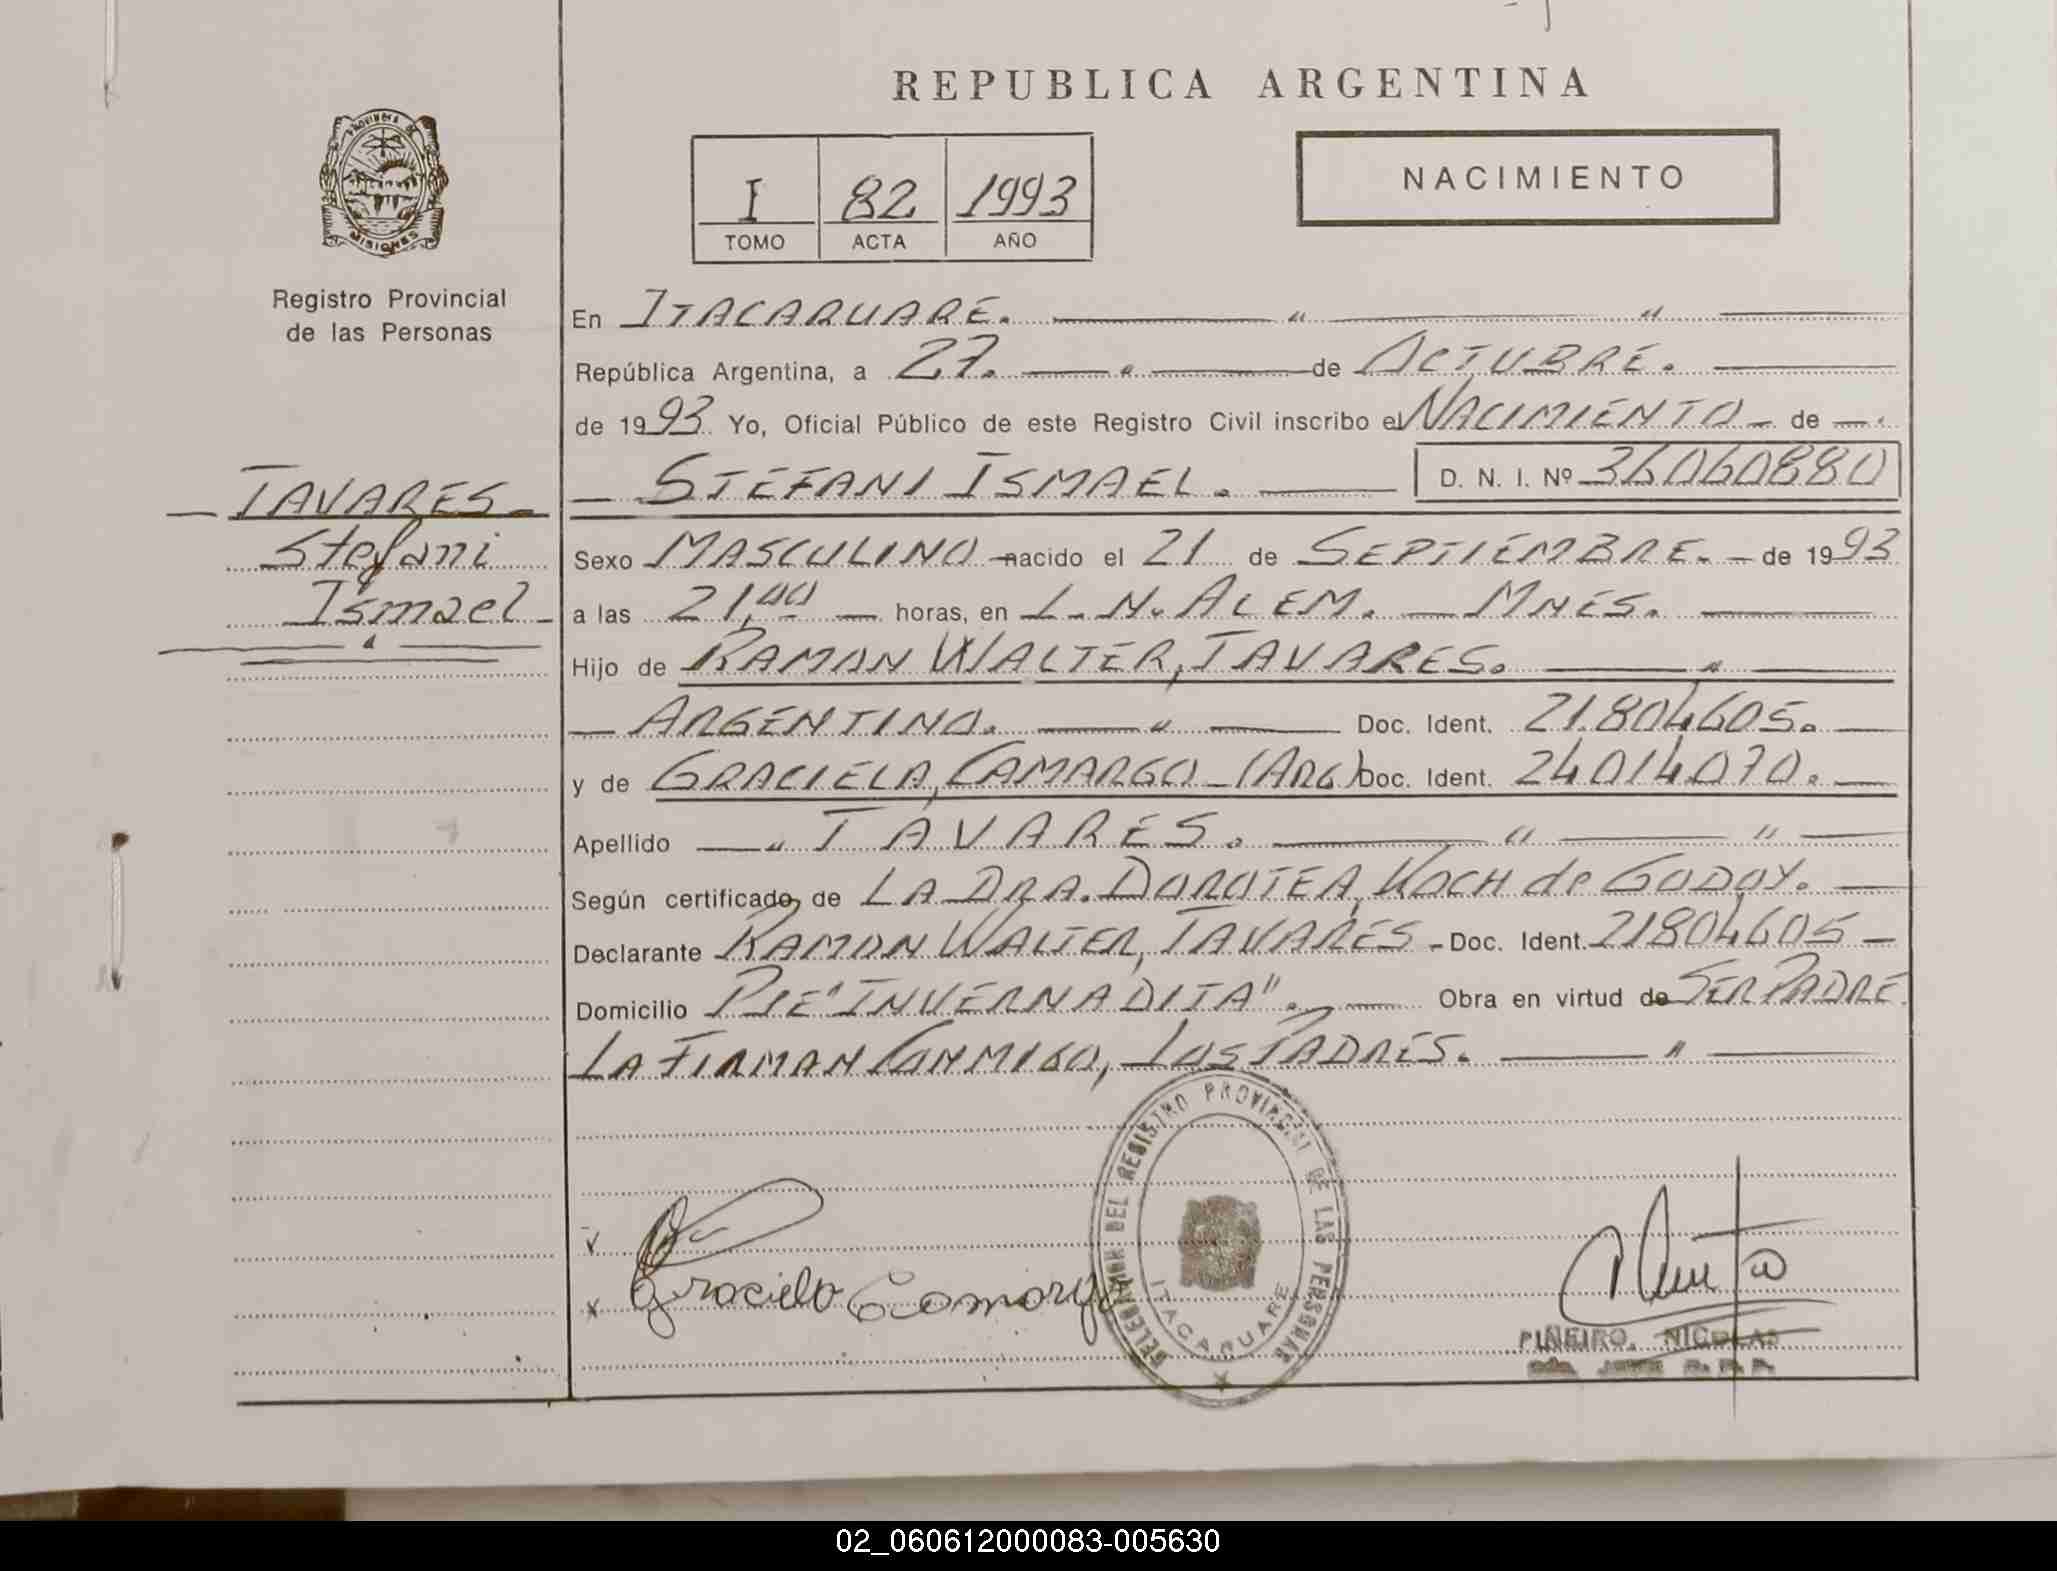 REPUBLICA ARGENTINA
PROVINCIA DE
MISIONES
Registro Provincial
de las Personas
I 82 1993
TOMO ACTA AÑO
NACIMIENTO
En ITACARUARE. — " — " —
República Argentina, a 27. — " — de OCTUBRE. —
de 1993 Yo, Oficial Público de este Registro Civil inscribo el NACIMIENTO - de —
— STEFANI ISMAEL. — D. N. I. Nº 36060880
— TAVARES -
Stefani
Ismael -
Sexo MASCULINO - nacido el 21 de SEPTIEMBRE. - de 1993
a las 21,00 — horas, en L. N. ALEM. — MNES. —
Hijo de RAMON WALTER, TAVARES. — " —
— ARGENTINO. — " — Doc. Ident. 21.804.605. —
y de GRACIELA, CAMARGO - (ARG) Doc. Ident. 24014070. —
Apellido — " TAVARES. — " — " —
Según certificado de LA DRA. DOROTEA, KOCH de GODOY. —
Declarante RAMON WALTER, TAVARES - Doc. Ident. 21804605 —
Domicilio PJE "INVERNADITA". — Obra en virtud de SER PADRE.
LA FIRMAN CONMIGO, LOS PADRES. — " —
DEL REGISTRO PROVINCIAL DE LAS PERSONAS
ITACARUARE
Graciela Camargo
PIÑEIRO, NICOLAS
02_060612000083-005630